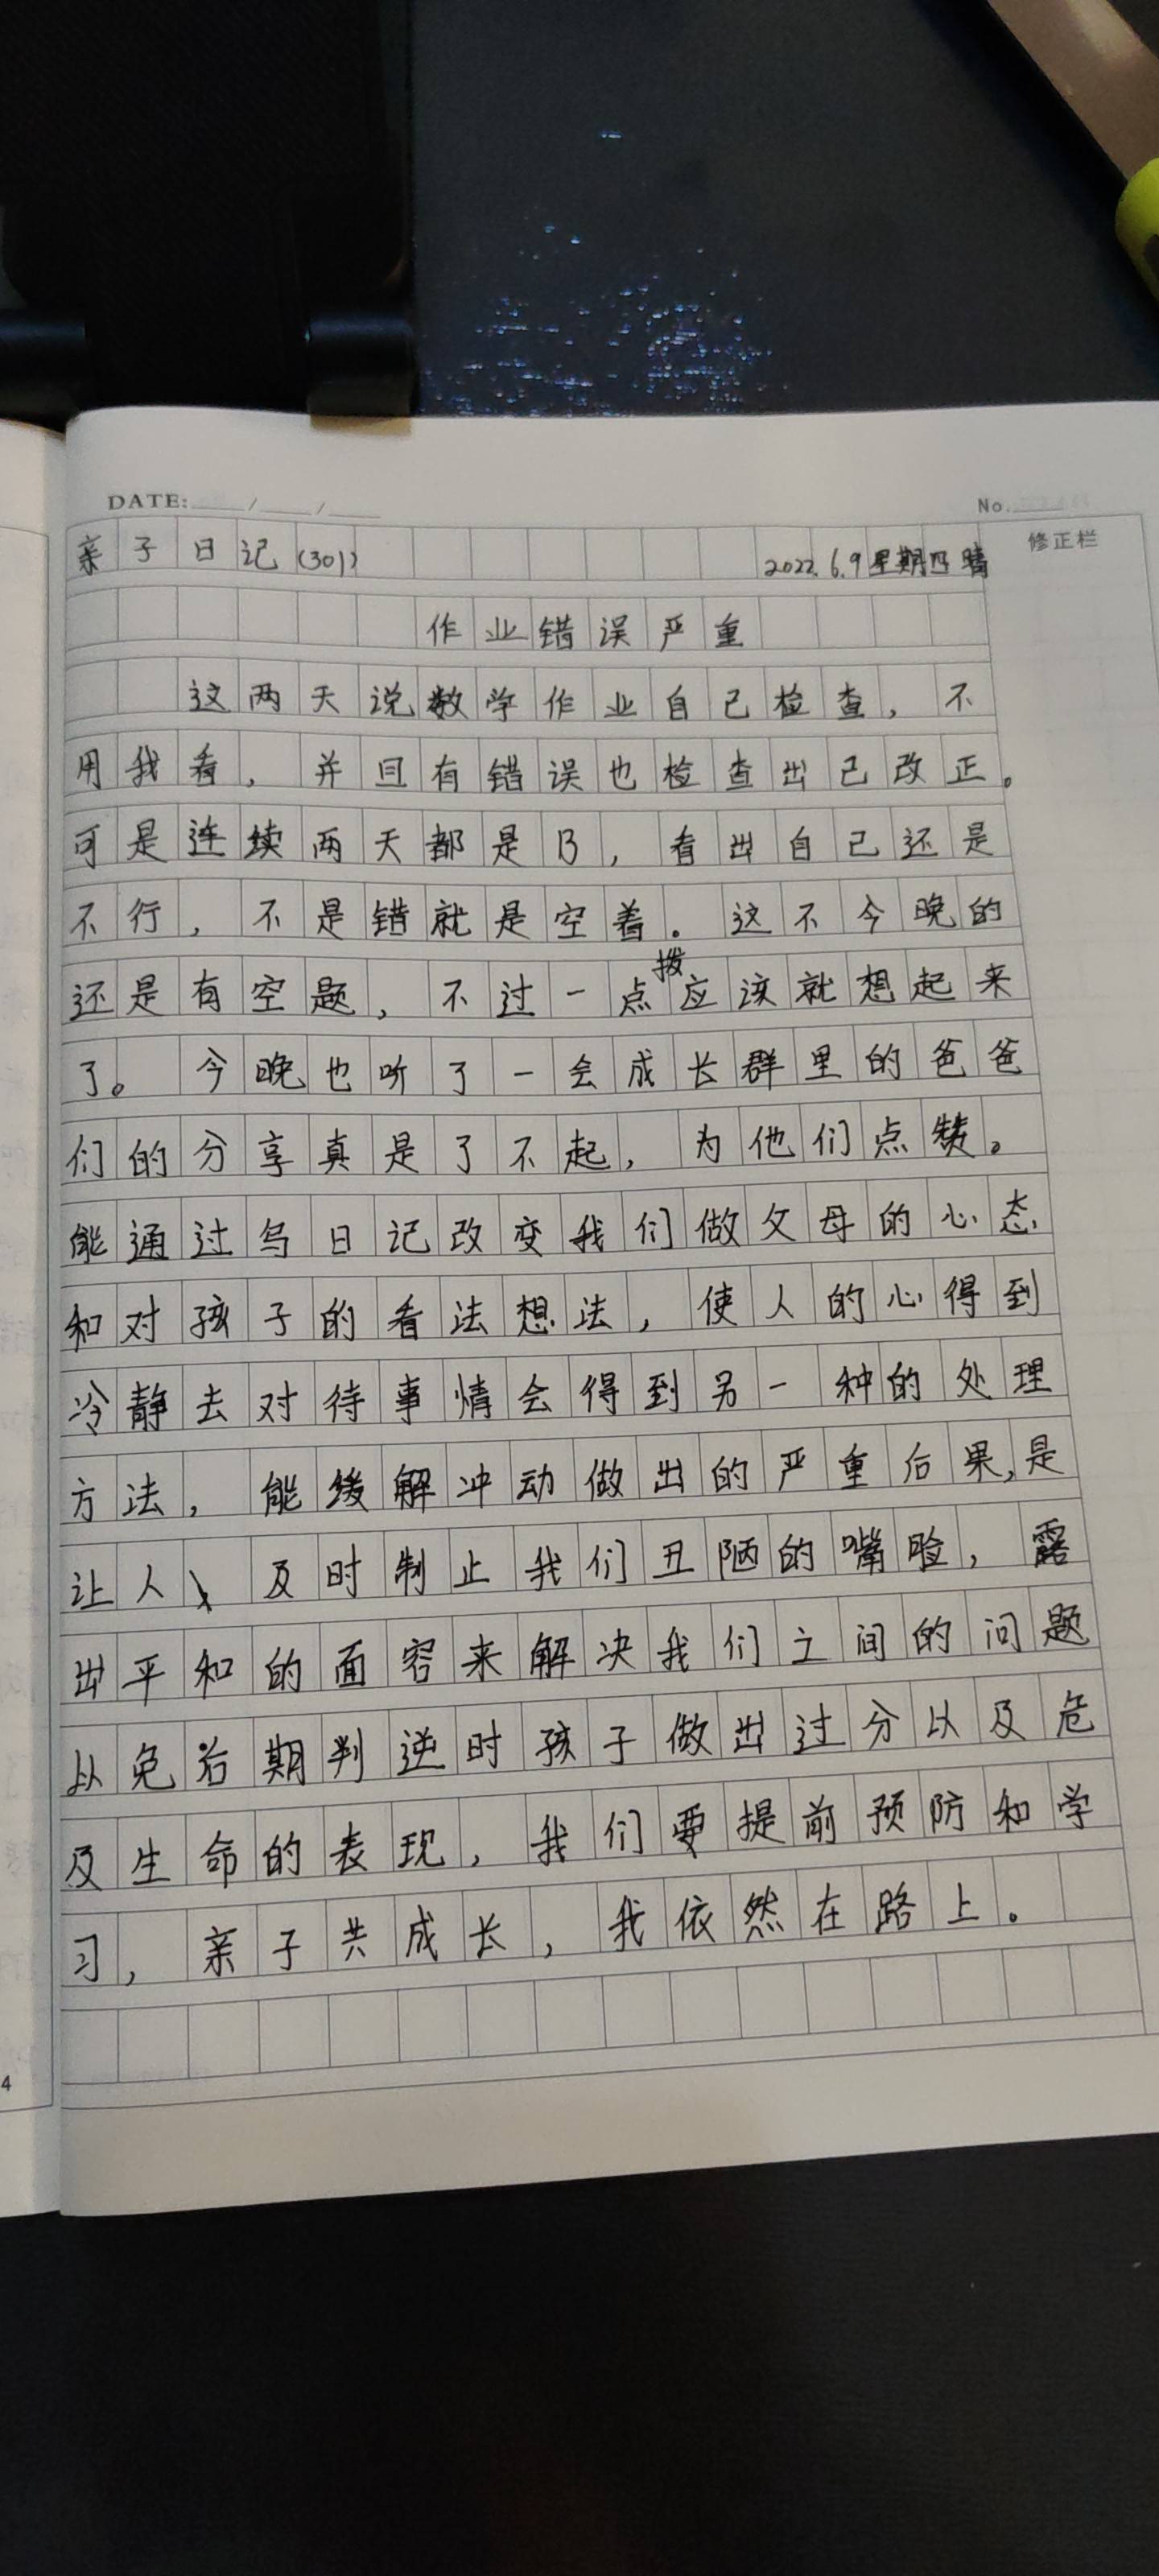 DATE: / / No.
亲子日记(301) 2022.6.9星期四 晴
修正栏
作业错误严重
这两天说数学作业自己检查,不
用我看,并且有错误也检查出己改正。
可是连续两天都是B,看出自己还是
不行,不是错就是空着。这不今晚的
还是有空题,不过一点拨应该就想起来
了。今晚也听了一会成长群里的爸爸
们的分享真是了不起,为他们点赞。
能通过写日记改变我们做父母的心态
和对孩子的看法想法,使人的心得到
冷静去对待事情会得到另一种的处理
方法,能缓解冲动做出的严重后果,是
让人、及时制止我们丑陋的嘴脸,露
出平和的面容来解决我们之间的问题
以免后期判逆时孩子做出过分以及危
及生命的表现,我们要提前预防和学
习,亲子共成长,我依然在路上。
4